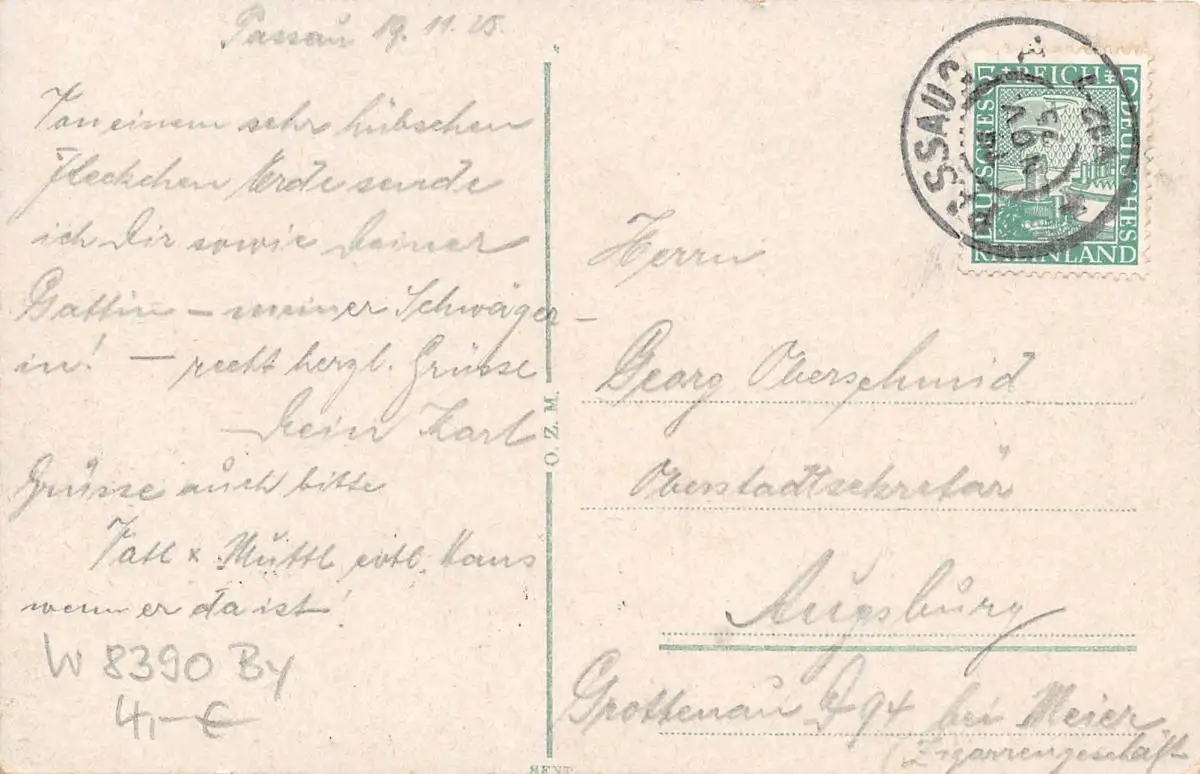 Passau 19. 11. 25.
Von einem sehr hübschen
Fleckchen Erde sende
ich Dir sowie Deiner
Gattin – meiner Schwäger-
in! — recht herzl. Grüsse
Dein Karl
Grüsse auch bitte
Vatl + Muttl evtl. Hans
wenn er da ist!
W 8390 By
4,- €
O. Z. M.
SSAU
NOV
5 DEUTSCHES REICH 5
RHEINLAND
Herrn
Georg Oberschmid
Oberstadtsekretär
Augsburg
Grottenau D 94 bei Meier
(Zigarrengeschäft